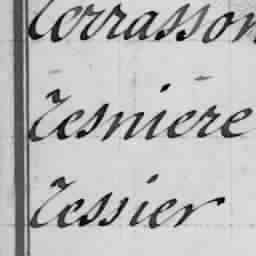 Terrasson
Tesniere
Tessier